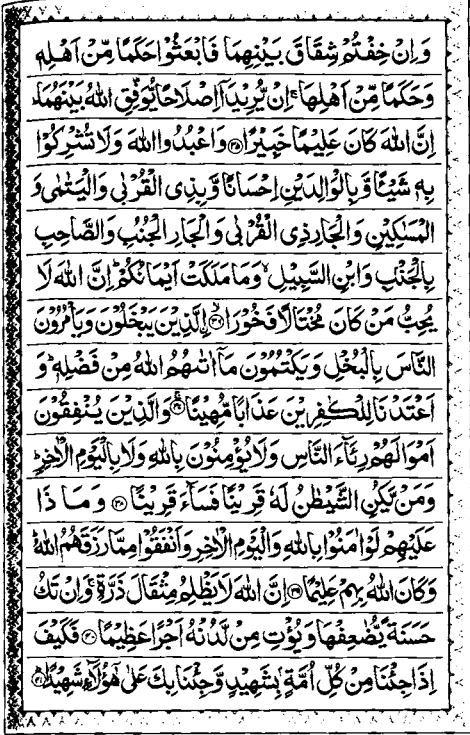 وَاِنْ خِفْتُمْ شِقَاقَ بَيْنِهِمَا فَابْعَثُوْا حَكَمًا مِّنْ اَهْلِهٖ
وَحَكَمًا مِّنْ اَهْلِهَا ۚ اِنْ يُّرِيْدَاۤ اِصْلَاحًا يُّوَفِّقِ اللّٰهُ بَيْنَهُمَا ؕ
اِنَّ اللّٰهَ كَانَ عَلِيْمًا خَبِيْرًا ﴿۳۵﴾ وَاعْبُدُوا اللّٰهَ وَلَا تُشْرِكُوْا
بِهٖ شَيْـًٔا وَّبِالْوَالِدَيْنِ اِحْسَانًا وَّبِذِى الْقُرْبٰى وَالْيَتٰمٰى وَ
الْمَسٰكِيْنِ وَالْجَارِ ذِى الْقُرْبٰى وَالْجَارِ الْجُنُبِ وَالصَّاحِبِ
بِالْجَنْۢبِ وَابْنِ السَّبِيْلِ ۙ وَمَا مَلَكَتْ اَيْمَانُكُمْ ؕ اِنَّ اللّٰهَ لَا
يُحِبُّ مَنْ كَانَ مُخْتَالًا فَخُوْرًا ۙ﴿۳۶﴾ اۨلَّذِيْنَ يَبْخَلُوْنَ وَيَاْمُرُوْنَ
النَّاسَ بِالْبُخْلِ وَيَكْتُمُوْنَ مَاۤ اٰتٰٮهُمُ اللّٰهُ مِنْ فَضْلِهٖ ؕ وَ
اَعْتَدْنَا لِلْكٰفِرِيْنَ عَذَابًا مُّهِيْنًا ۚ﴿۳۷﴾ وَالَّذِيْنَ يُنْفِقُوْنَ
اَمْوَالَهُمْ رِئَآءَ النَّاسِ وَلَا يُؤْمِنُوْنَ بِاللّٰهِ وَلَا بِالْيَوْمِ الْاٰخِرِ ؕ
وَمَنْ يَّكُنِ الشَّيْطٰنُ لَهٗ قَرِيْنًا فَسَآءَ قَرِيْنًا ﴿۳۸﴾ وَمَا ذَا
عَلَيْهِمْ لَوْ اٰمَنُوْا بِاللّٰهِ وَالْيَوْمِ الْاٰخِرِ وَاَنْفَقُوْا مِمَّا رَزَقَهُمُ اللّٰهُ ؕ
وَكَانَ اللّٰهُ بِهِمْ عَلِيْمًا ﴿۳۹﴾ اِنَّ اللّٰهَ لَا يَظْلِمُ مِثْقَالَ ذَرَّةٍ ۚ وَاِنْ تَكُ
حَسَنَةً يُّضٰعِفْهَا وَيُؤْتِ مِنْ لَّدُنْهُ اَجْرًا عَظِيْمًا ﴿۴۰﴾ فَكَيْفَ
اِذَا جِئْنَا مِنْ كُلِّ اُمَّةٍۭ بِشَهِيْدٍ وَّجِئْنَا بِكَ عَلٰى هٰۤؤُلَآءِ شَهِيْدًا ؕ﴿۴۱﴾